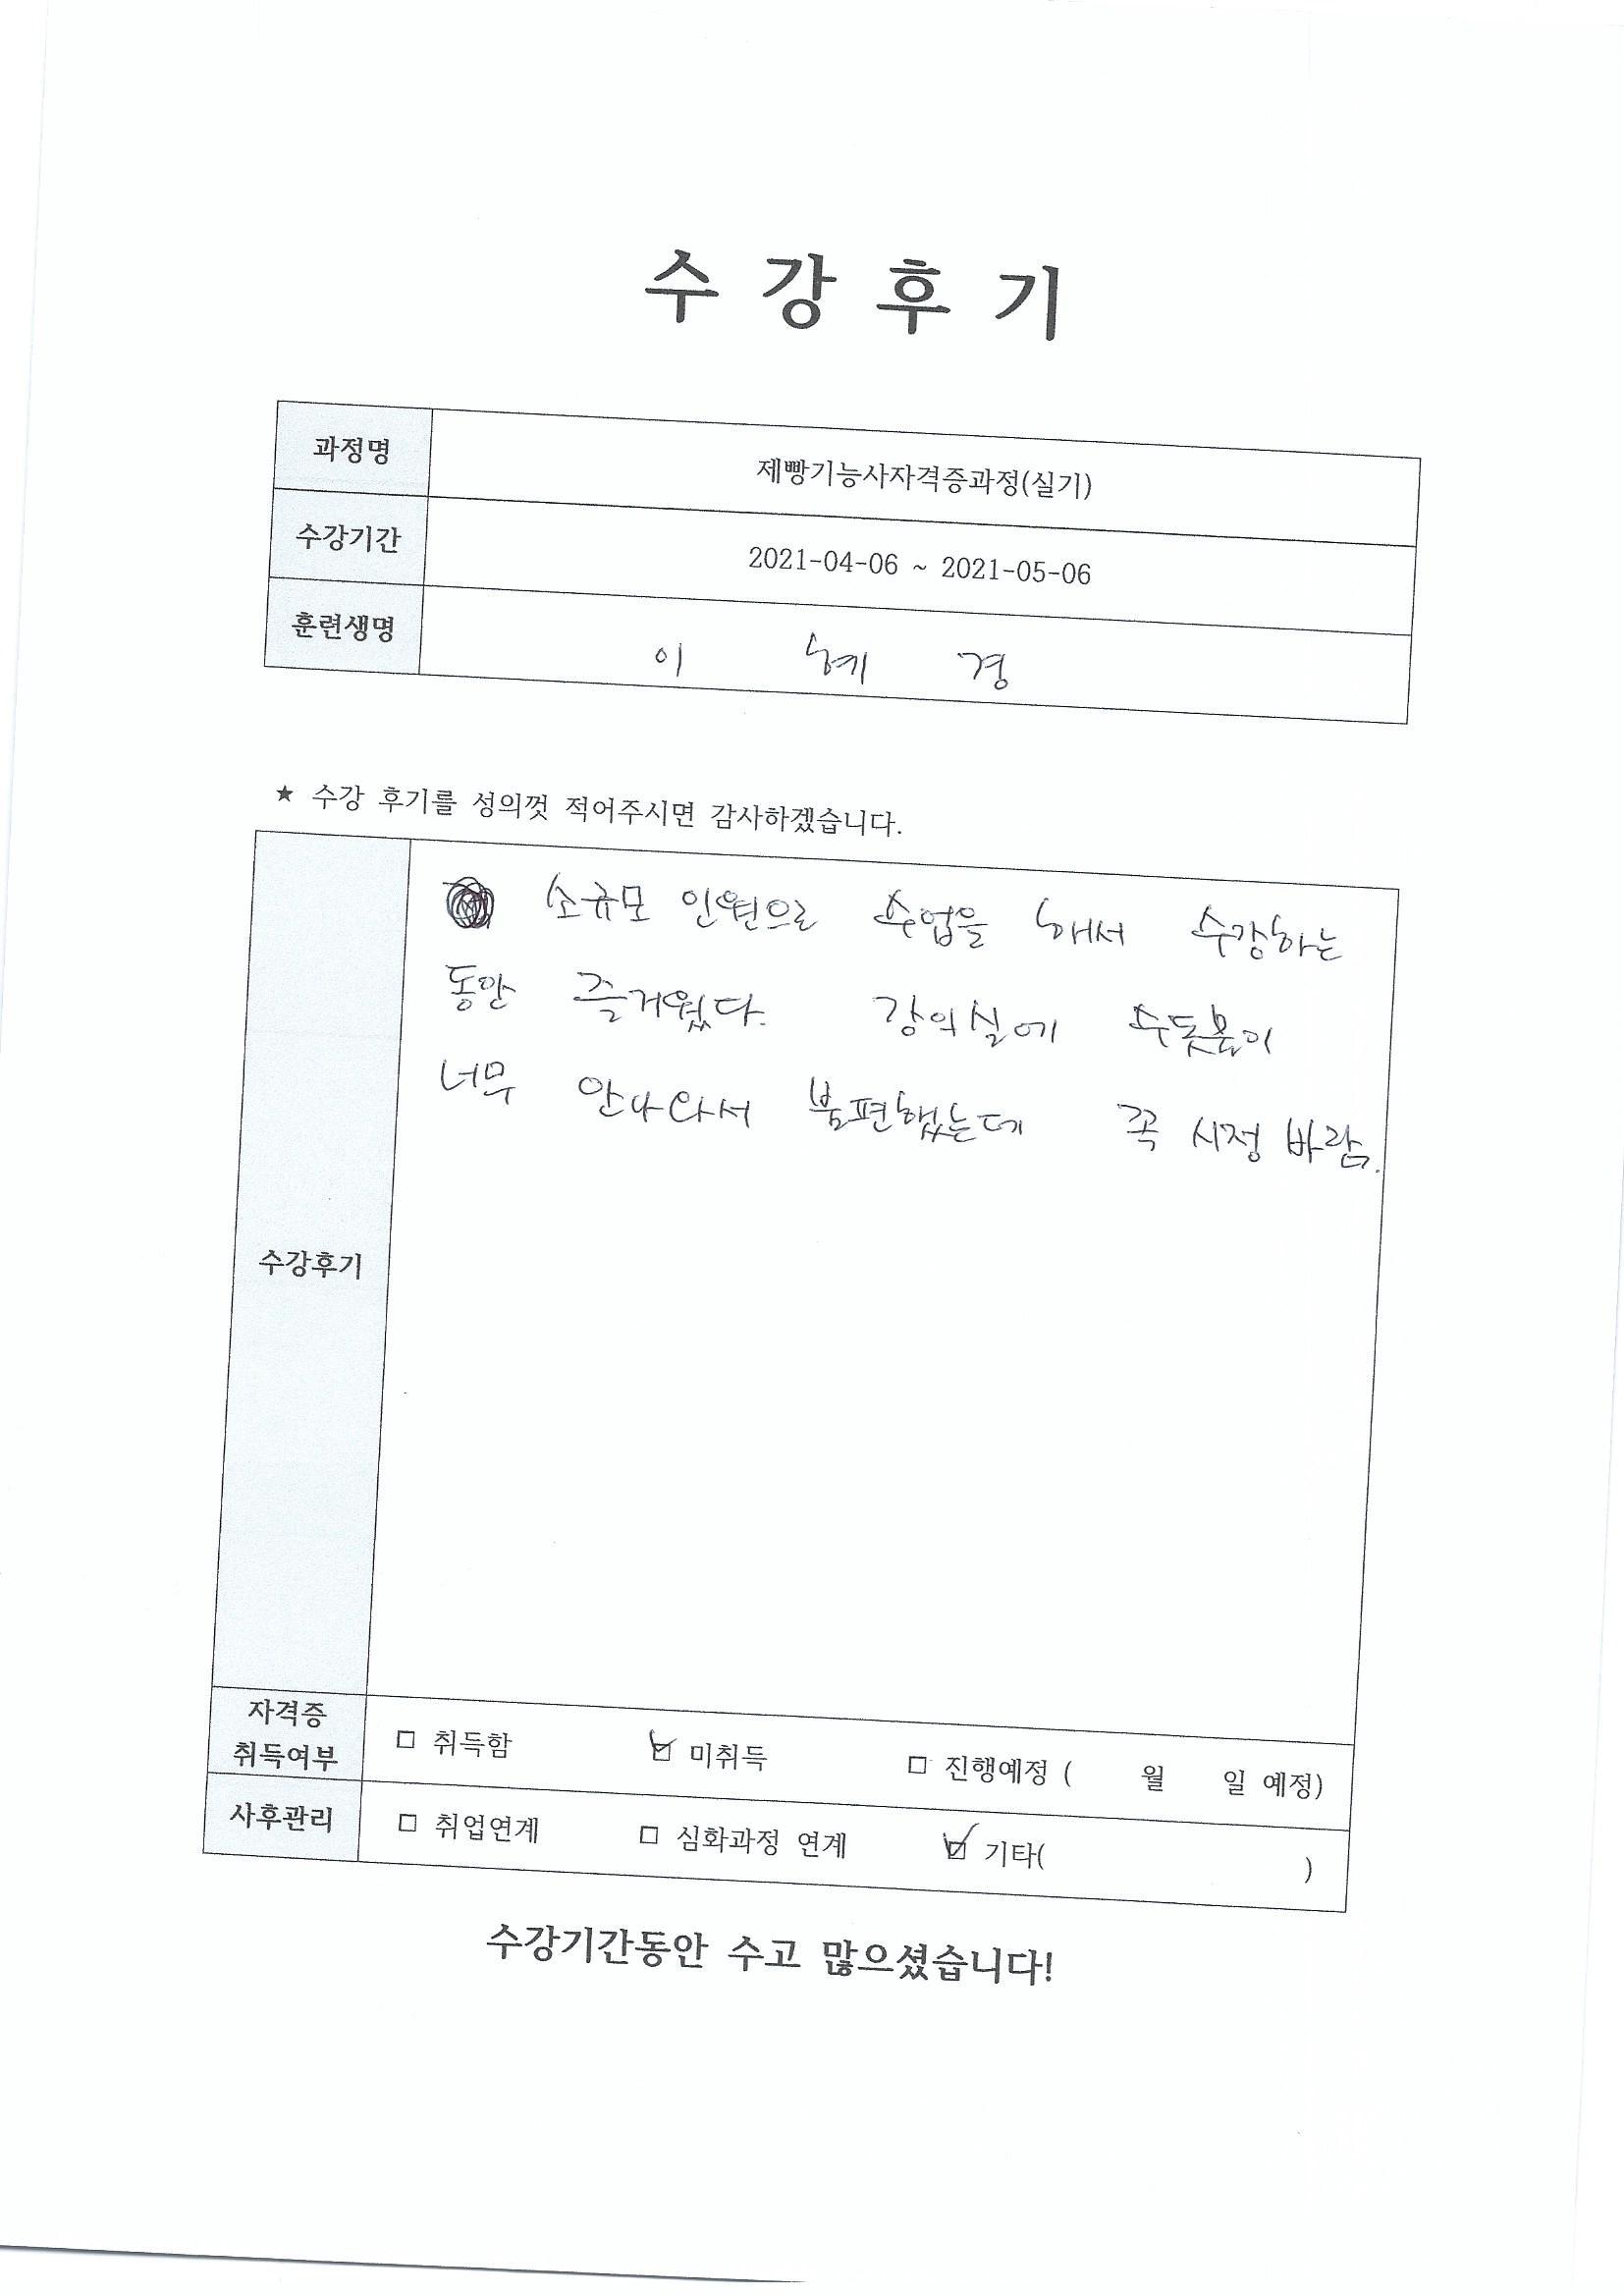 수 강 후 기
과정명 제빵기능사자격증과정(실기)
수강기간 2021-04-06 ~ 2021-05-06
훈련생명 이 혜 경
★ 수강 후기를 성의껏 적어주시면 감사하겠습니다.
소규모 인원으로 수업을 해서 수강하는
동안 즐거웠다. 강의실에 수돗물이
너무 안나와서 불편했는데 꼭 시정 바람.
수강후기
자격증
취득여부 □ 취득함 ☑ 미취득 □ 진행예정 ( 월 일 예정)
사후관리 □ 취업연계 □ 심화과정 연계 ☑ 기타( )
수강기간동안 수고 많으셨습니다!